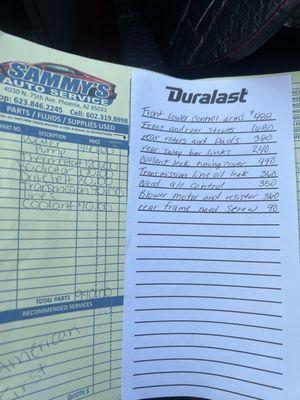 SAMMY'S
AUTO SERVICE
4030 N. 75th Ave. Phoenix, AZ 85033
Shop: 623.846.2245 Cell: 602.319.8998
PARTS / FLUIDS / SUPPLIES USED
PART NO. DESCRIPTION
Thermostat
Radiator
Transmission
Coolant
TOTAL PARTS
RECOMMENDED SERVICES
American
First
QUOTE $
Duralast
Front lower control arms $400
Front and rear struts 1680
rear rotors and pads 380
rear sway bar links 240
Coolant leak timing cover 990
Transmission line oil leak 360
Need a/c control 350
Blower motor and resister 360
rear frame need screw 90